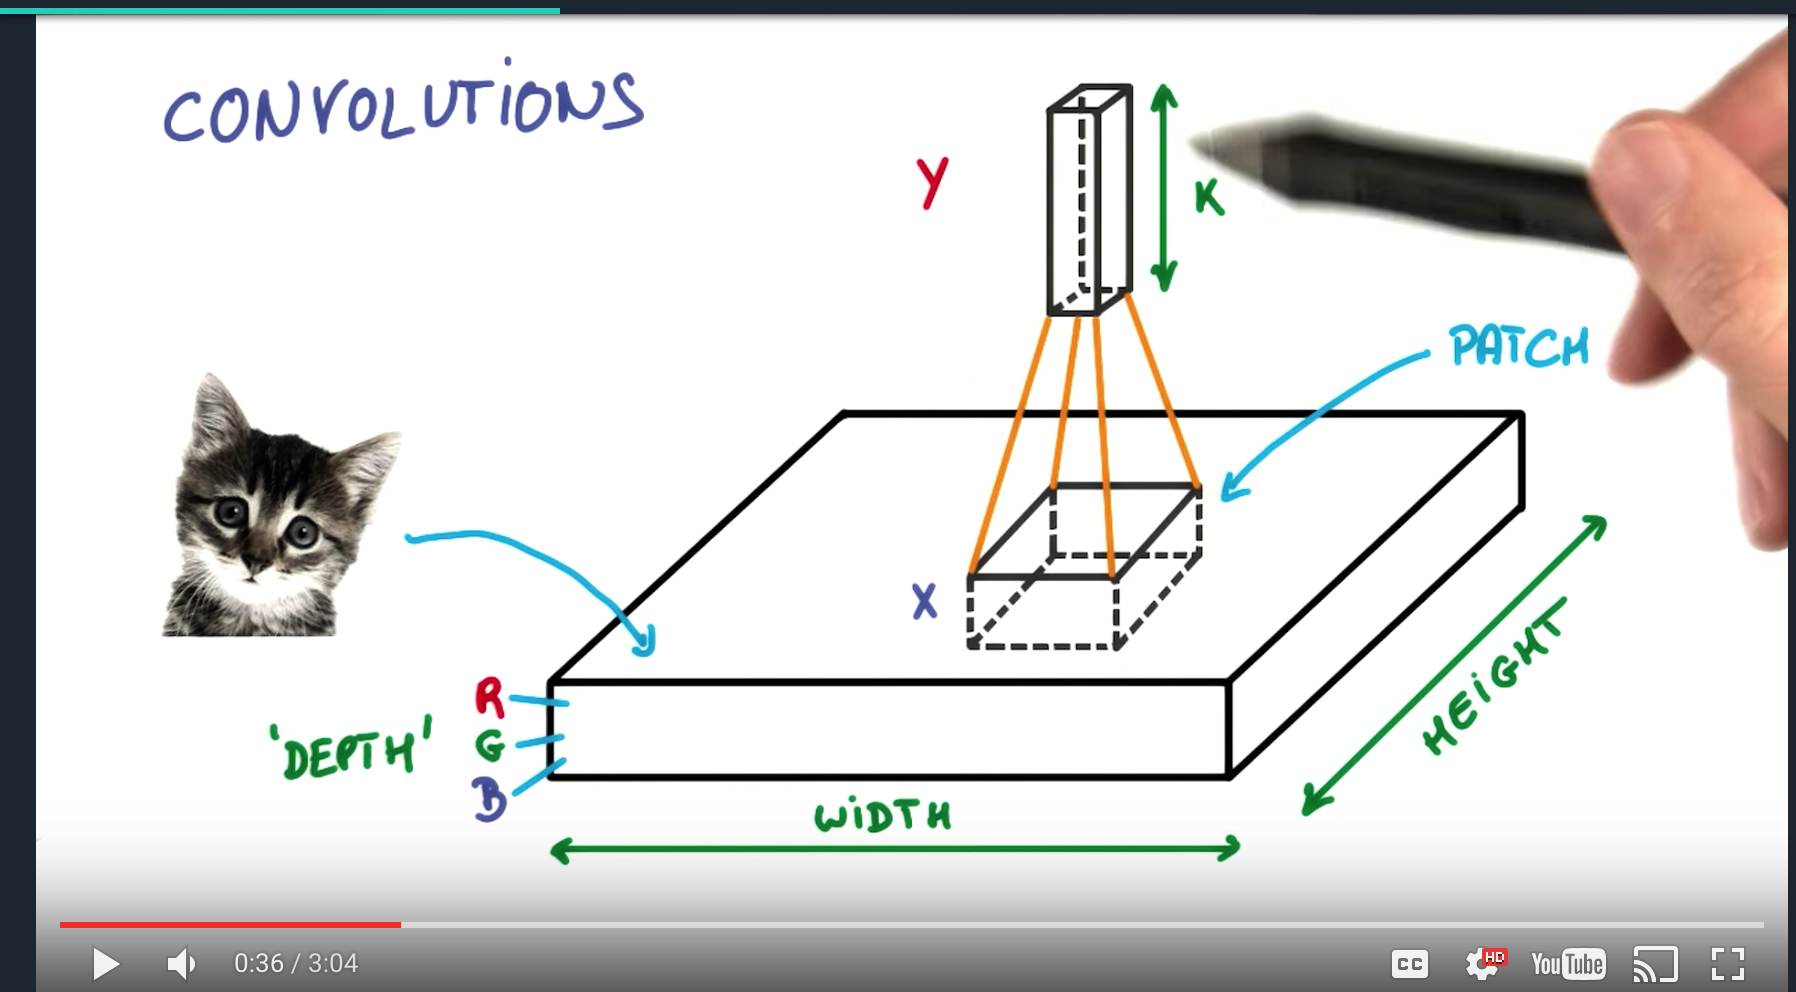 CONVOLUTIONS
Y
K
PATCH
X
R
'DEPTH'
G
B
HEIGHT
WIDTH
0:36 / 3:04
CC
HD
YouTube